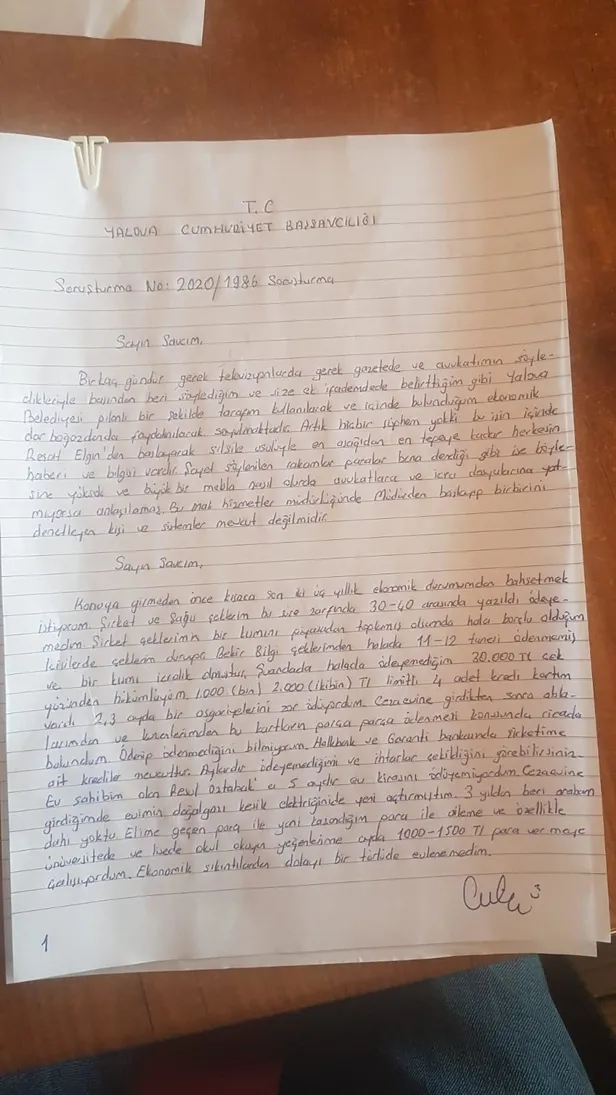 T.C
YALOVA CUMHURİYET BAŞSAVCILIĞI
Soruşturma No: 2020/1986 Soruşturma
Sayın Savcım,
Birkaç gündür gerek televizyonlarda gerek gazetede ve avukatımın söyle-
dikleriyle başından beri söylediğim ve size ek ifademdede belirttiğim gibi Yalova
Belediyesi planlı bir şekilde tarafım kullanılarak ve içinde bulunduğum ekonomik
dar boğazdanda faydalanılarak soyulmaktadır. Artık hiçbir şüphem yokki bu işin içinde
Resat Elgin'den başlayarak silsile usulüyle en aşağıdan en tepeye kadar herkesin
haberi ve bilgisi vardır. Şayet söylenilen rakamlar paralar bana dendiği gibi ise böyle-
sine yüksek ve büyük bir mebla nasıl olurda avukatlara ve icra dosyalarına yat-
mıyorsa anlaşılamaz. Bu mali hizmetler müdürlüğünde Müdürden başlayıp birbirini
denetleyen kişi ve sistemler mevcut değilmidir.
Sayın Savcım,
Konuya girmeden önce kısaca son iki üç yıllık ekonomik durumumdan bahsetmek
istiyorum. Şirket ve Şahsi çeklerim bu süre zarfında 30-40 arasında yazıldı ödeye-
medim. Şirket çeklerimin bir kısmını piyasadan toplamış olsamda hala borçlu olduğum
kişilerde çeklerim duruyor. Bekir Bilgi çeklerimden halada 11-12 tanesi ödenmemiş
ve bir kısmı icralık olmuştur. Şuandada halada ödeyemediğim 30.000 TL çek
yüzünden hükümlüyüm. 1.000 (bin) 2.000 (ikibin) Tl limitli 4 adet kredi kartım
vardı 2,3 ayda bir asgarilerini zor ödüyordum. Cezaevine girdikten sonra abla-
larımdan ve kuzenlerimden bu kartların parça parça ödenmesi konusunda ricada
bulundum. Ödenip ödenmediğini bilmiyorum. Halkbank ve Garanti bankasında şirketime
ait krediler mevcuttur. Aylardır ödeyemediğimi ve ihtarlar çekildiğini görebilirsiniz.
Ev sahibim olan Resul Oztabak' a 5 aydır ev kirasını ödüyemiyordum. Cezaevine
girdiğimde evimin doğalgazı kesik elektriğinide yeni açtırmıştım. 3 yıldan beri arabam
dahi yoktu. Elime geçen para ile yani kazandığım para ile aileme ve özellikle
üniversitede ve lisede okul okuyan yeğenlerime ayda 1000-1500 Tl para vermeye
çalışıyordum. Ekonomik sıkıntılardan dolayı bir türlüde evlenemedim.
1